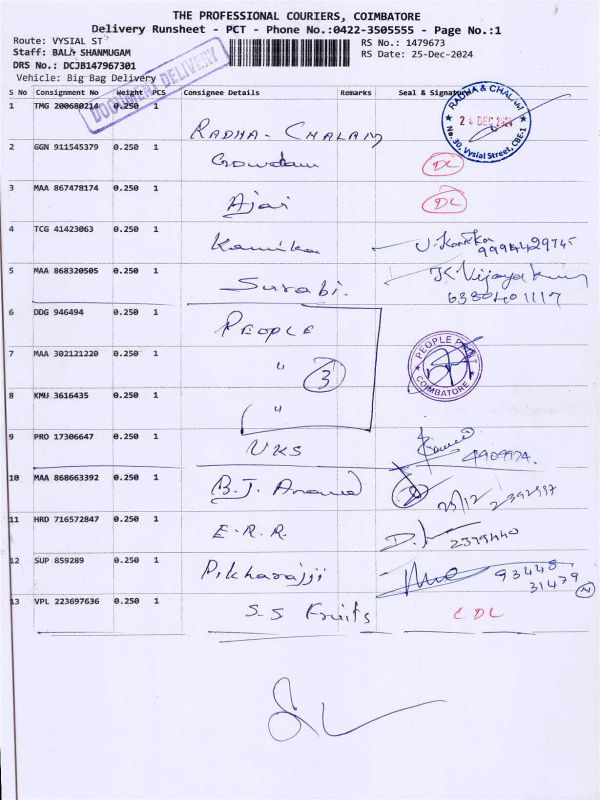 THE PROFESSIONAL COURIERS, COIMBATORE
Delivery Runsheet - PCT - Phone No.:0422-3505555 - Page No.:1
Route: VYSIAL ST
RS No.: 1479673
Staff: BALA SHANMUGAM
RS Date: 25-Dec-2024
DRS No.: DCJB147967301
Vehicle: Big Bag Delivery
DOCUMENT DELIVERY
S No Consignment No Weight PCS Consignee Details Remarks Seal & Signature
1 TMG 200680214 0.250 1 RADHA-CHALAM
RADHA & CHALAM
DEC 2024
No. 30, Vysial Street, CBE-1
2 GGN 911545379 0.250 1 DL
3 MAA 867478174 0.250 1 Ajai DL
4 TCG 41423063 0.250 1 Kanika
5 MAA 868320505 0.250 1 Surabi.
6380401117
6 DDG 946494 0.250 1 PEOPLE
PEOPLE
COIMBATORE
7 MAA 302121220 0.250 1 " 3
8 KMU 3616435 0.250 1 "
9 PRO 17306647 0.250 1 UKS
10 MAA 868663392 0.250 1 B.J. Anand 25/12
11 HRD 716572847 0.250 1 E.R.R. 2399440
12 SUP 859289 0.250 1 93448
31479
13 VPL 223697636 0.250 1 S.S Fruits CDL